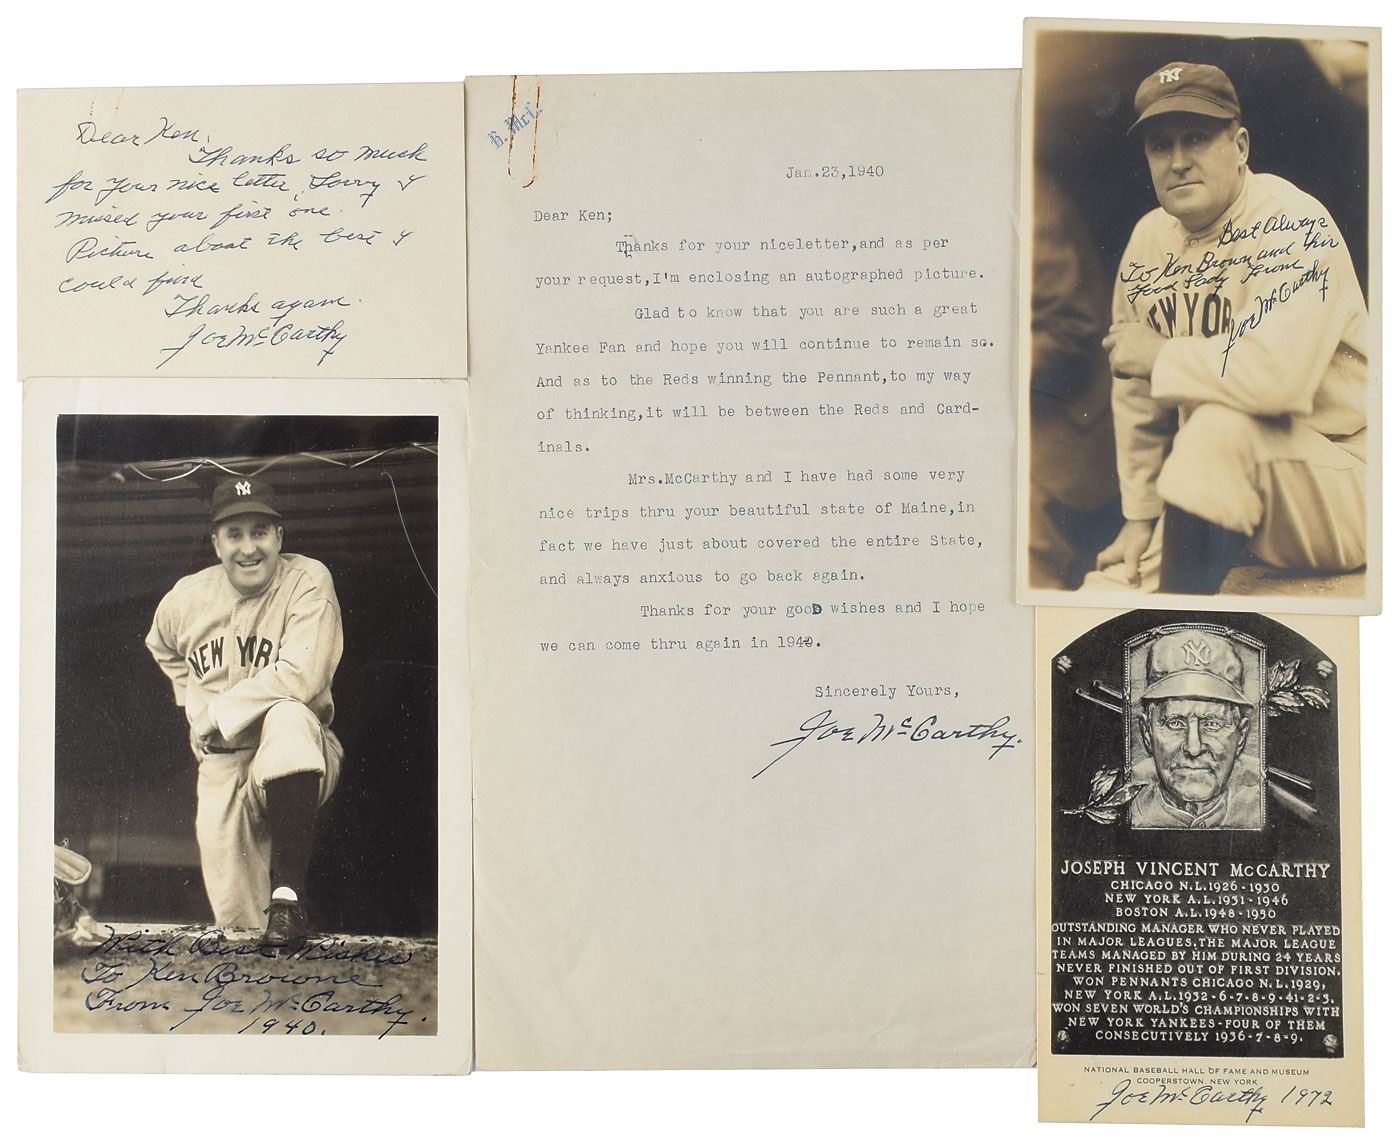 Dear Ken,
Thanks so much
for your nice letter, Sorry I
missed your first one.
Picture about the best I
could find
Thanks again.
Joe McCarthy
NY
NEW YOR
With Best Wishes
To Ken Browne
From Joe McCarthy.
1940.
B. McC.
Jan.23,1940
Dear Ken;
Thanks for your niceletter,and as per
your request,I'm enclosing an autographed picture.
Glad to know that you are such a great
Yankee Fan and hope you will continue to remain so.
And as to the Reds winning the Pennant,to my way
of thinking,it will be between the Reds and Card-
inals.
Mrs.McCarthy and I have had some very
nice trips thru your beautiful state of Maine,in
fact we have just about covered the entire State,
and always anxious to go back again.
Thanks for your good wishes and I hope
we can come thru again in 1940.
Sincerely Yours,
Joe McCarthy.
NY
Best Always
To Ken Brown and his
Good Lady From
Joe McCarthy
NEW YOR
NY
JOSEPH VINCENT McCARTHY
CHICAGO N.L.1926-1930
NEW YORK A.L.1931-1946
BOSTON A.L.1948-1950
OUTSTANDING MANAGER WHO NEVER PLAYED
IN MAJOR LEAGUES.THE MAJOR LEAGUE
TEAMS MANAGED BY HIM DURING 24 YEARS
NEVER FINISHED OUT OF FIRST DIVISION.
WON PENNANTS CHICAGO N.L.1929,
NEW YORK A.L.1932-6-7-8-9-41-2-3.
WON SEVEN WORLD'S CHAMPIONSHIPS WITH
NEW YORK YANKEES-FOUR OF THEM
CONSECUTIVELY 1936-7-8-9.
NATIONAL BASEBALL HALL OF FAME AND MUSEUM
COOPERSTOWN, NEW YORK
Joe McCarthy 1972